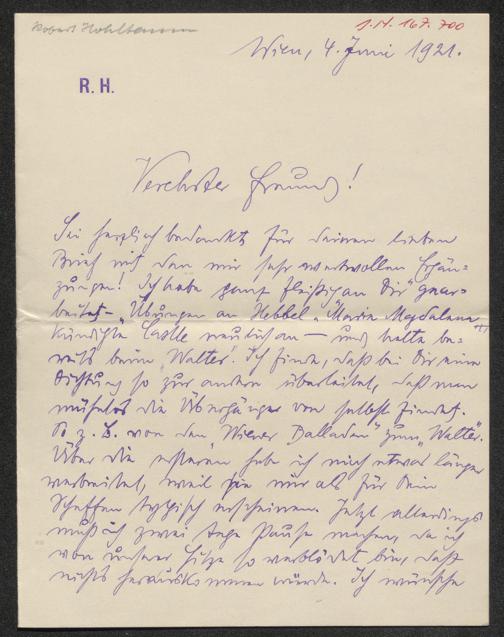 Robert Hohlbaum
J.N. 167.700
Wien, 4. Juni 1921.
R. H.
Verehrter Freund!
Sei herzlich bedankt für deinen lieben
Brief mit den mir sehr wertvollen Ergän=
zungen! Ich habe ganz fleißig "an Dir" gear=
beitet – "Übungen an Hebbel u. Maria Magdalena"
kündigte Castle neulich an – und halte be=
reits beim "Walter". Ich finde, daß bei Dir eine
Dichtung so zur andern überleitet, daß man
mühelos die Übergänge von selbst findet.
So z. B. von den "Wiener Balladen" zum "Walter".
Über die ersteren habe ich mich etwas länger
verbreitet, weil sie mir als für Dein
Schaffen typisch erscheinen. Jetzt allerdings
muß ich zwei Tage Pause machen, da ich
von unserer Hitze so verblödet bin, daß
nichts herauskommen würde. Ich wünsche